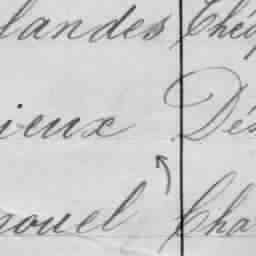 landes Théo
ieux Dés
nouel Cha